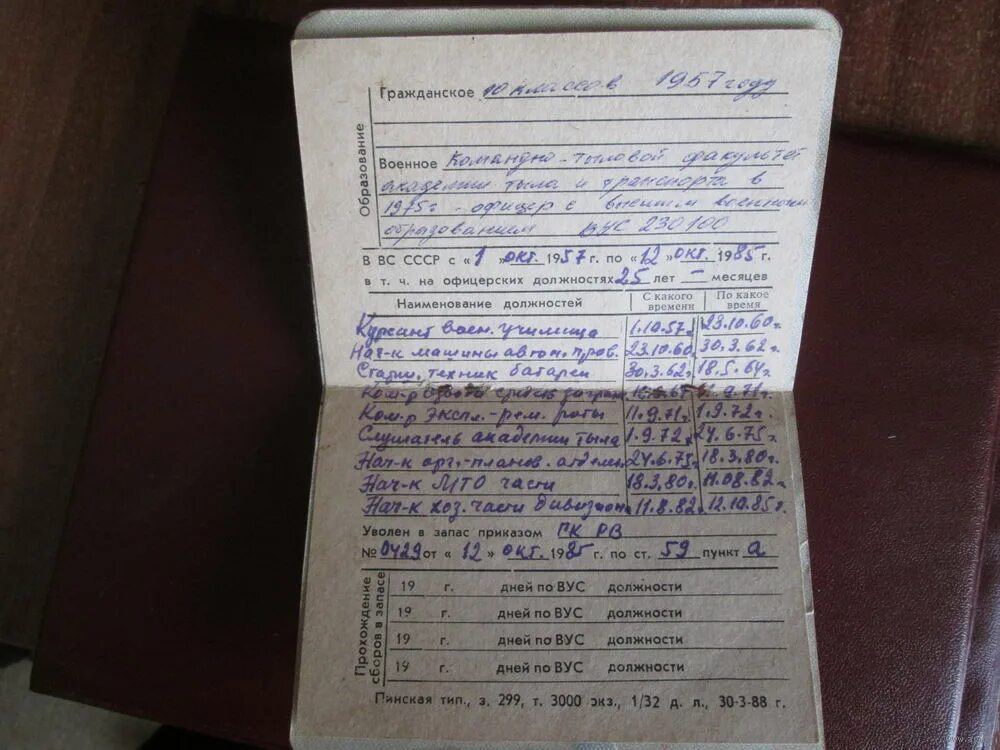 Образование
Гражданское 10 классов 1957 году
Военное Командно-тыловой факультет
академии тыла и транспорта в
1975г - офицер с высшим военным
образованием ВУС 230100
В ВС СССР с «1» окт. 1957 г. по «12» окт. 1985 г.
в т. ч. на офицерских должностях 25 лет — месяцев
Наименование должностей С какого времени По какое время
Курсант воен. училища 1.10.57г. 23.10.60г.
Нач-к машины автом. пров. 23.10.60 30.3.62г.
Старш. техник батареи 30.3.62г. 18.5.64г.
Ком-р взвода 11.9.71г.
Ком-р экспл.-рем. роты 11.9.71г. 1.9.72г.
Слушатель академии тыла 1.9.72г. 24.6.75г.
Нач-к орг.-планов. отделен. 24.6.75г. 18.3.80г.
Нач-к МТО части 18.3.80г. 11.08.82г.
Нач-к хоз. части дивизион 11.8.82г. 12.10.85г.
Уволен в запас приказом ГК РВ
№ 0429 от «12» окт. 1985 г. по ст. 59 пункт а
Прохождение сборов в запасе
19 г. дней по ВУС должности
19 г. дней по ВУС должности
19 г. дней по ВУС должности
19 г. дней по ВУС должности
Пинская тип., з. 299, т. 3000 экз., 1/32 д. л., 30-3-88 г.